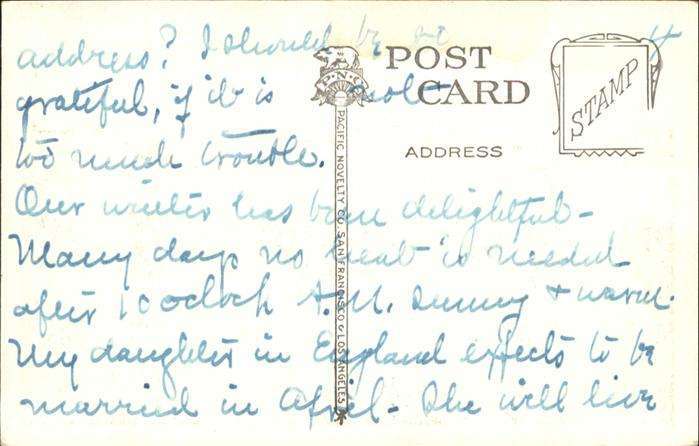 address? I should be so 4
grateful, if it is not
too much trouble.
Our winter has been delightful -
Many days no heat is needed
after 10 oclock A.M. Sunny & warm.
My daughter in England expects to be
married in April - She will live
POST
CARD
ADDRESS
STAMP
P.N.C
PACIFIC NOVELTY CO. SAN FRANCISCO & LOS ANGELES